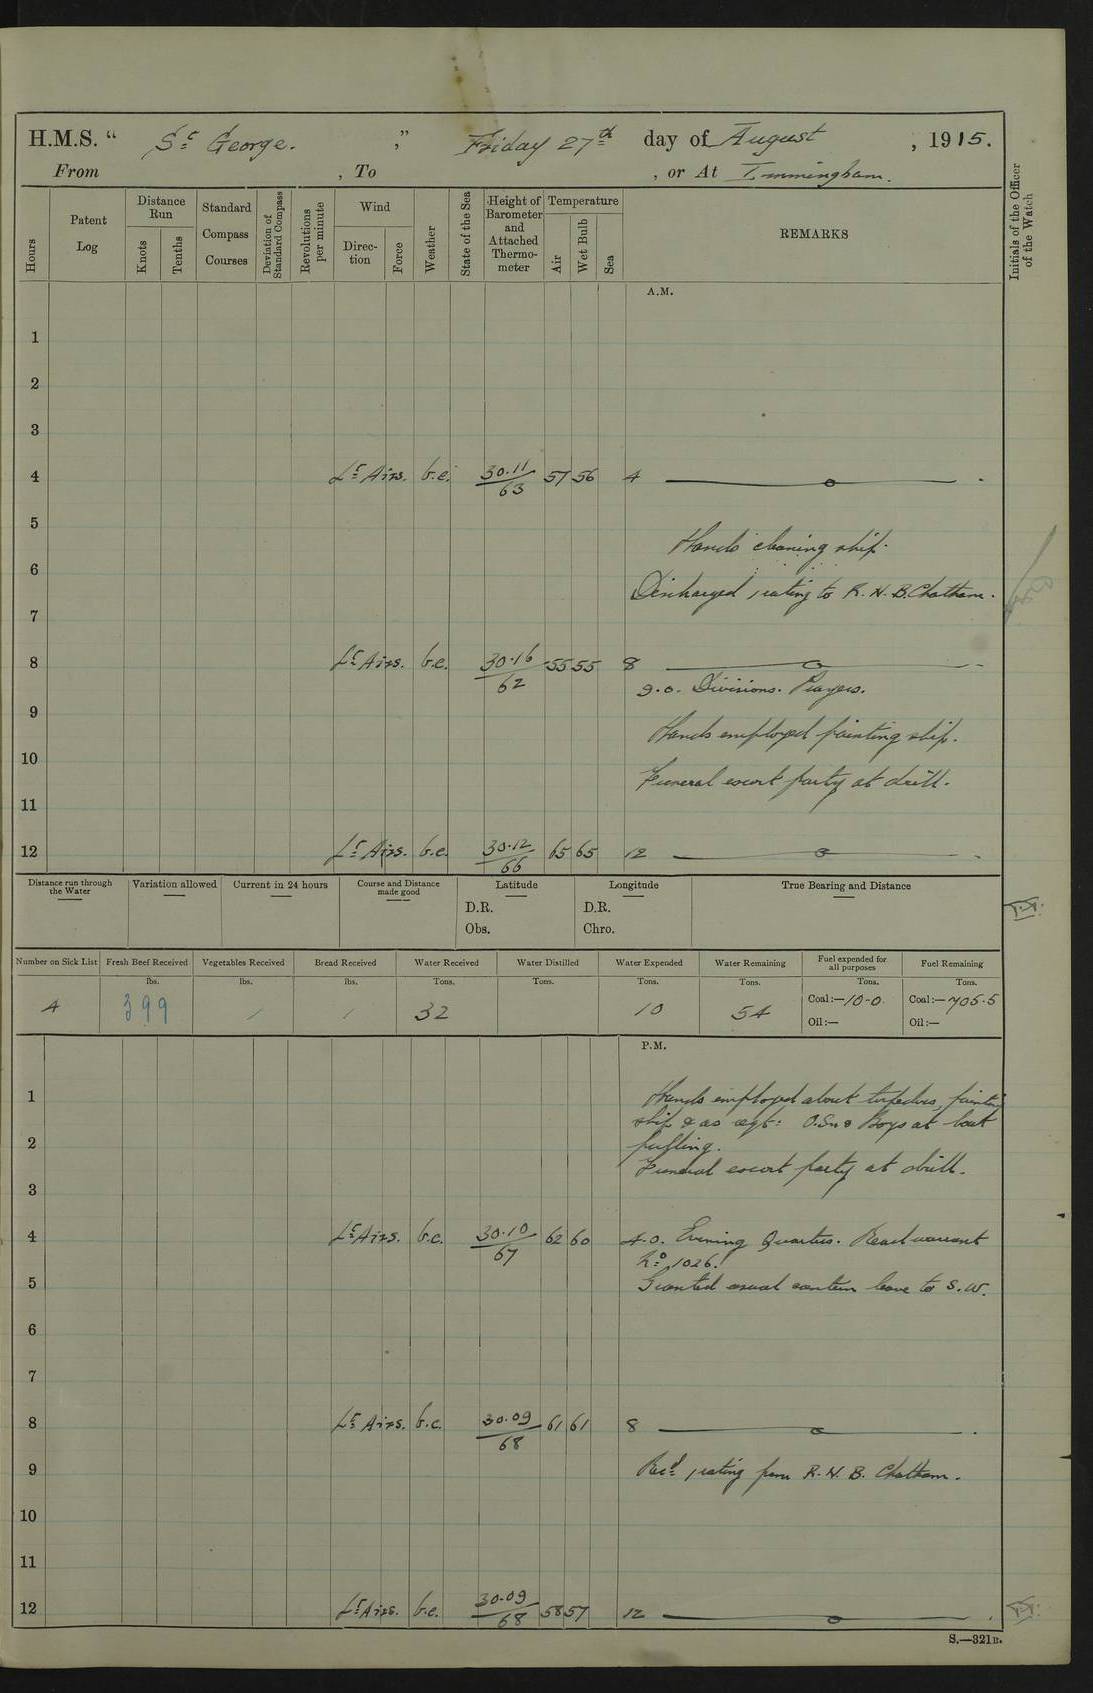 H.M.S. " St George. " Friday 27th day of August, 1915.
From , To , or At Immingham.
Hours
Patent Log
Distance Run
Knots
Tenths
Standard Compass Courses
Deviation of Standard Compass
Revolutions per minute
Wind
Direction
Force
Weather
State of the Sea
Height of Barometer and Attached Thermometer
Temperature
Air
Wet Bulb
Sea
REMARKS
Initials of the Officer of the Watch
A.M.
1
2
3
4 Lt Airs. b.c. 30.11/63 57 56 4
5
Hands cleaning ship.
6
Discharged 1 rating to R.N.B. Chatham.
7
8 Lt Airs. b.c. 30.16/62 55 55 8
9.0. Divisions. Prayers.
9
Hands employed painting ship.
10
Funeral escort party at drill.
11
12 Lt Airs. b.c. 30.12/66 65 65 12
Distance run through the Water
Variation allowed
Current in 24 hours
Course and Distance made good
Latitude
D.R.
Obs.
Longitude
D.R.
Chro.
True Bearing and Distance
Number on Sick List
Fresh Beef Received
Vegetables Received
Bread Received
Water Received
Water Distilled
Water Expended
Water Remaining
Fuel expended for all purposes
Fuel Remaining
lbs. lbs. lbs. Tons. Tons. Tons. Tons. Tons. Tons.
4 399 / / 32 10 54 Coal:—10-0. Coal:—705.5
Oil:— Oil:—
P.M.
1 Hands employed about torpedoes, painting
ship & as reqt: O.Sn & Boys at boat
2 pulling.
Funeral escort party at drill.
3
4 Lt Airs. b.c. 30.10/67 62 60 4.0. Evening Quarters. Read warrant
No 1026.
5 Granted usual canteen leave to S.W.
6
7
8 Lt Airs. b.c. 30.09/68 61 61 8
9 Recd 1 rating from R.N.B. Chatham.
10
11
12 Lt Airs. b.c. 30.09/68 58 57 12
S.—321B.